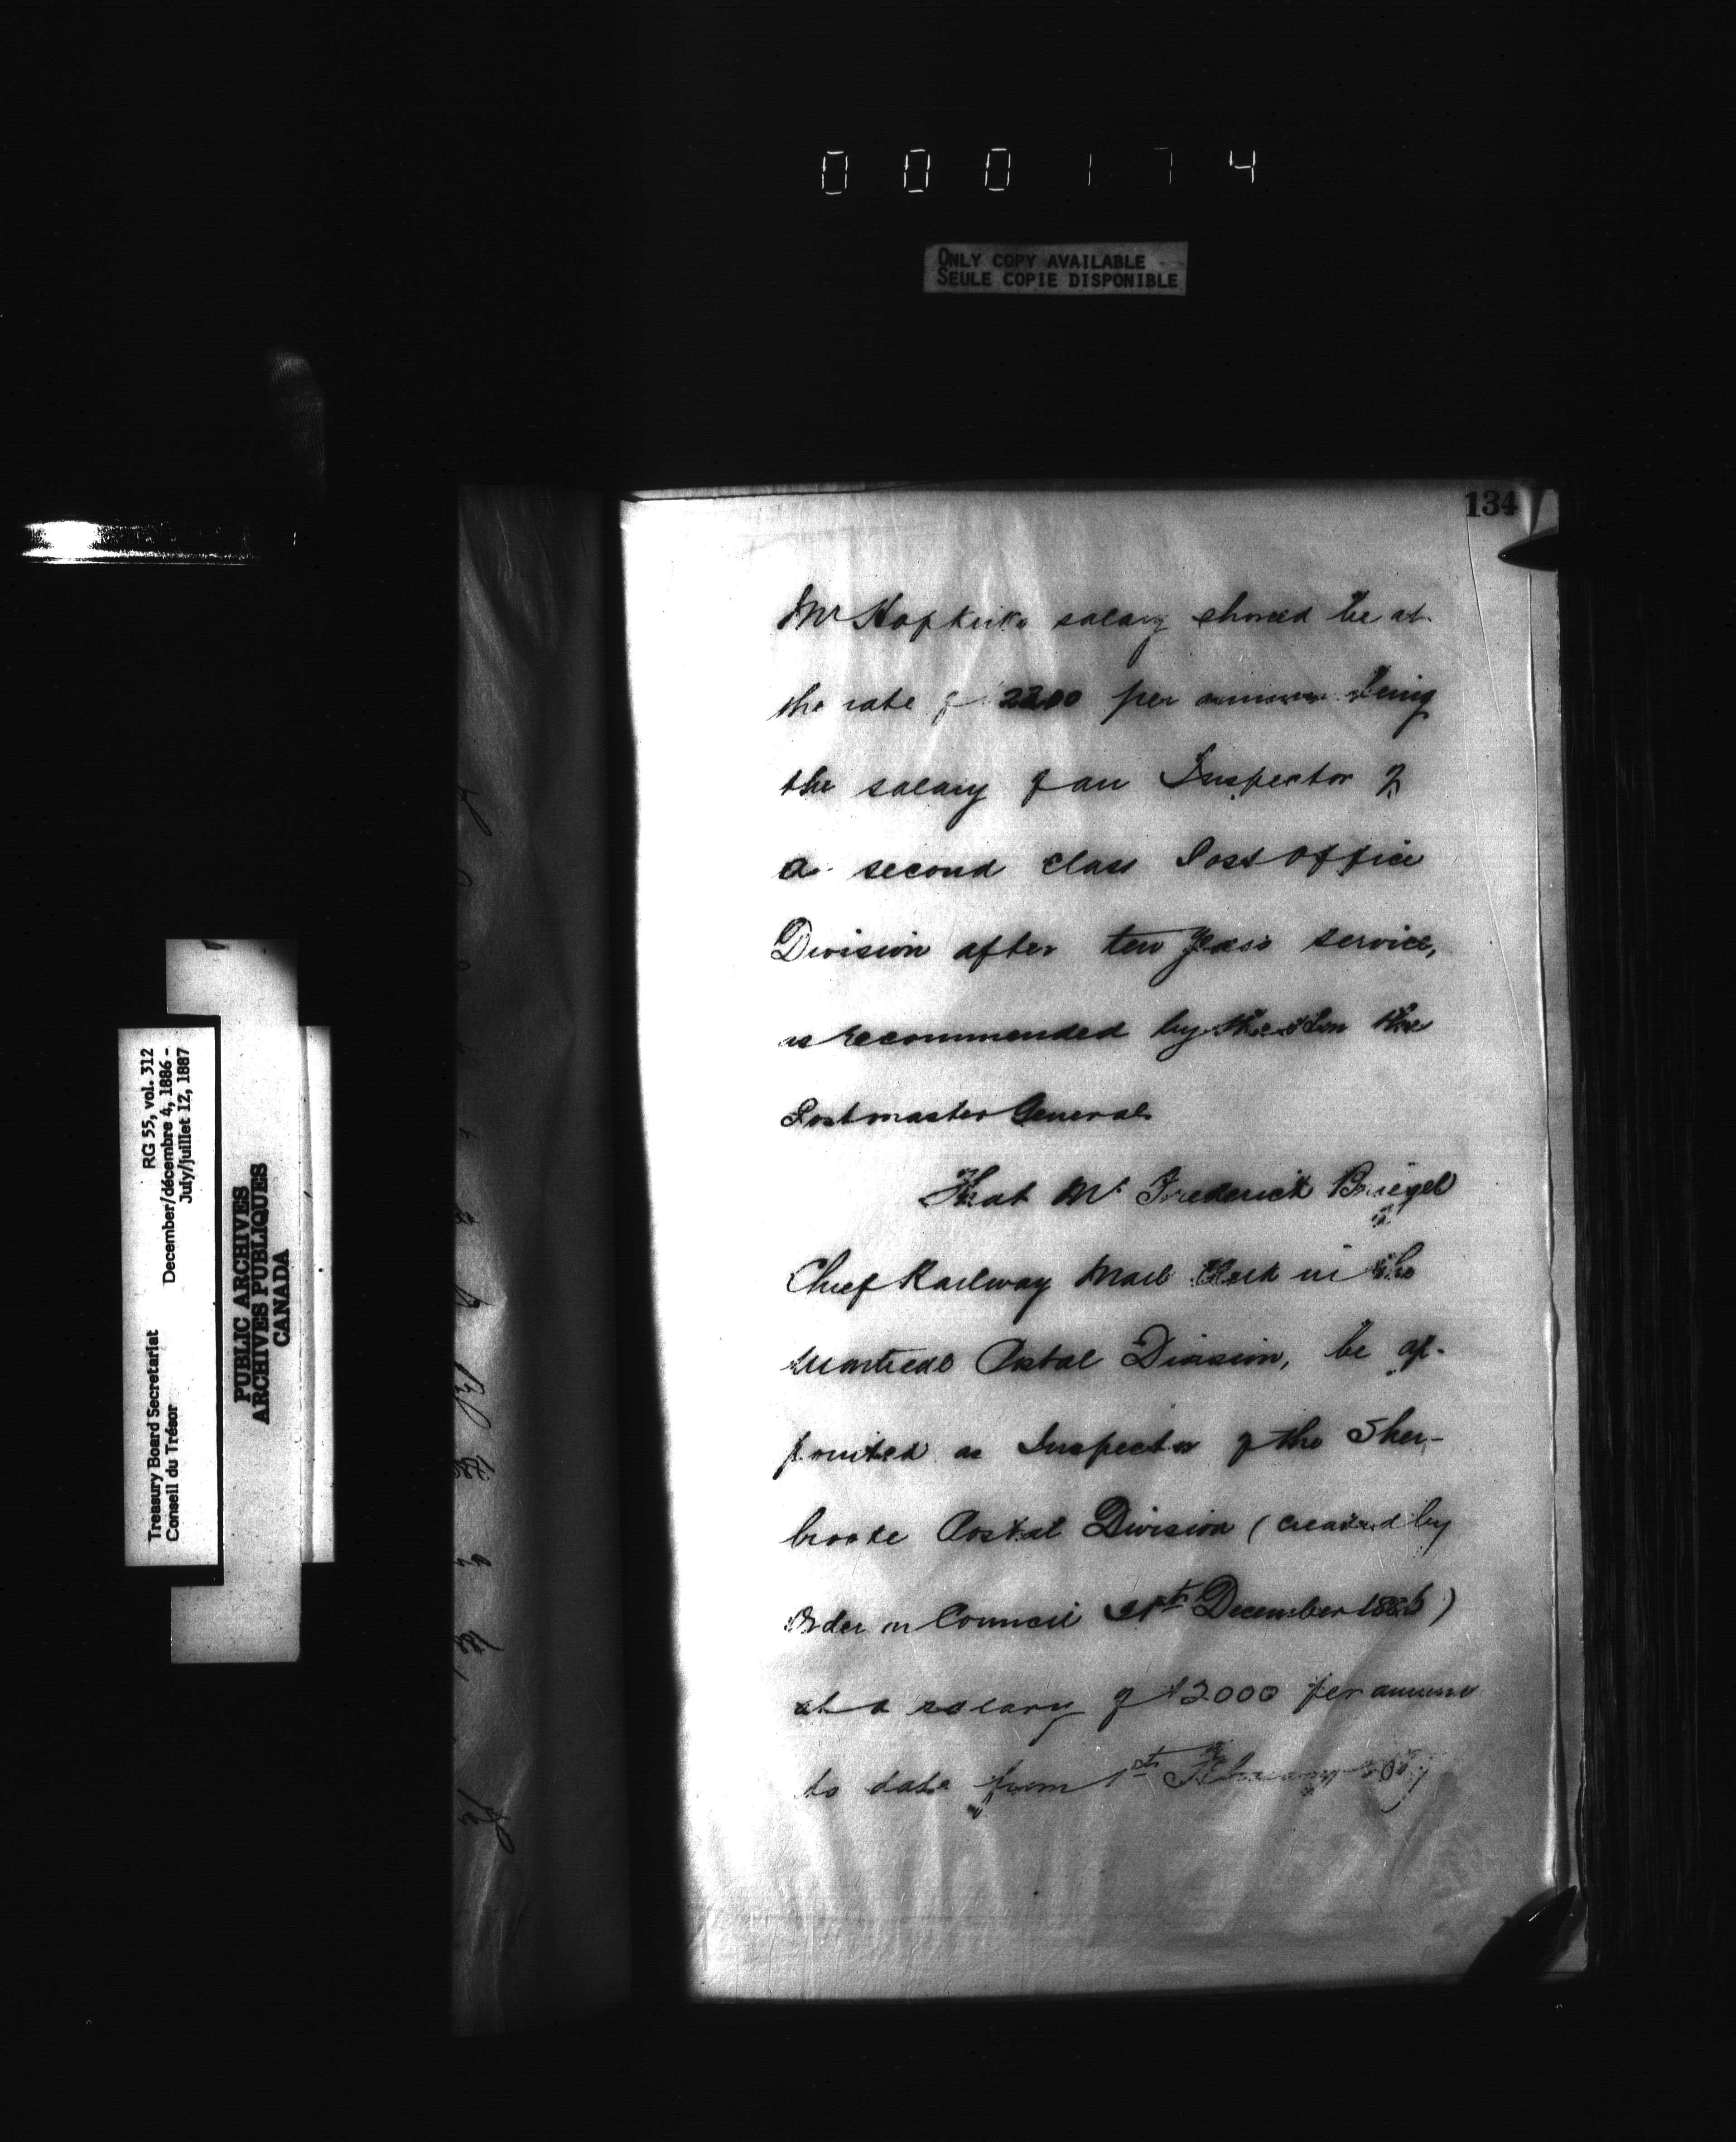 000174
ONLY COPY AVAILABLE
SEULE COPIE DISPONIBLE
134
Mr Hopkirk's salary should be at
the rate of 2200 per annum being
the salary of an Inspector of
a second class Post Office
Division after ten years service,
as recommended by the Hon the
Postmaster General.
That Mr Frederick
Chief Railway Mail Clerk in the
Montreal Postal Division, be ap-
pointed as Inspector of the Sher-
brooke Postal Division (created by
Order in Council December 1886)
at a salary of $2000 per annum
to date from 1st February
Treasury Board Secretariat RG 55, vol. 312
Conseil du Trésor December/décembre 4, 1886 -
July/juillet 12, 1887
PUBLIC ARCHIVES
ARCHIVES PUBLIQUES
CANADA